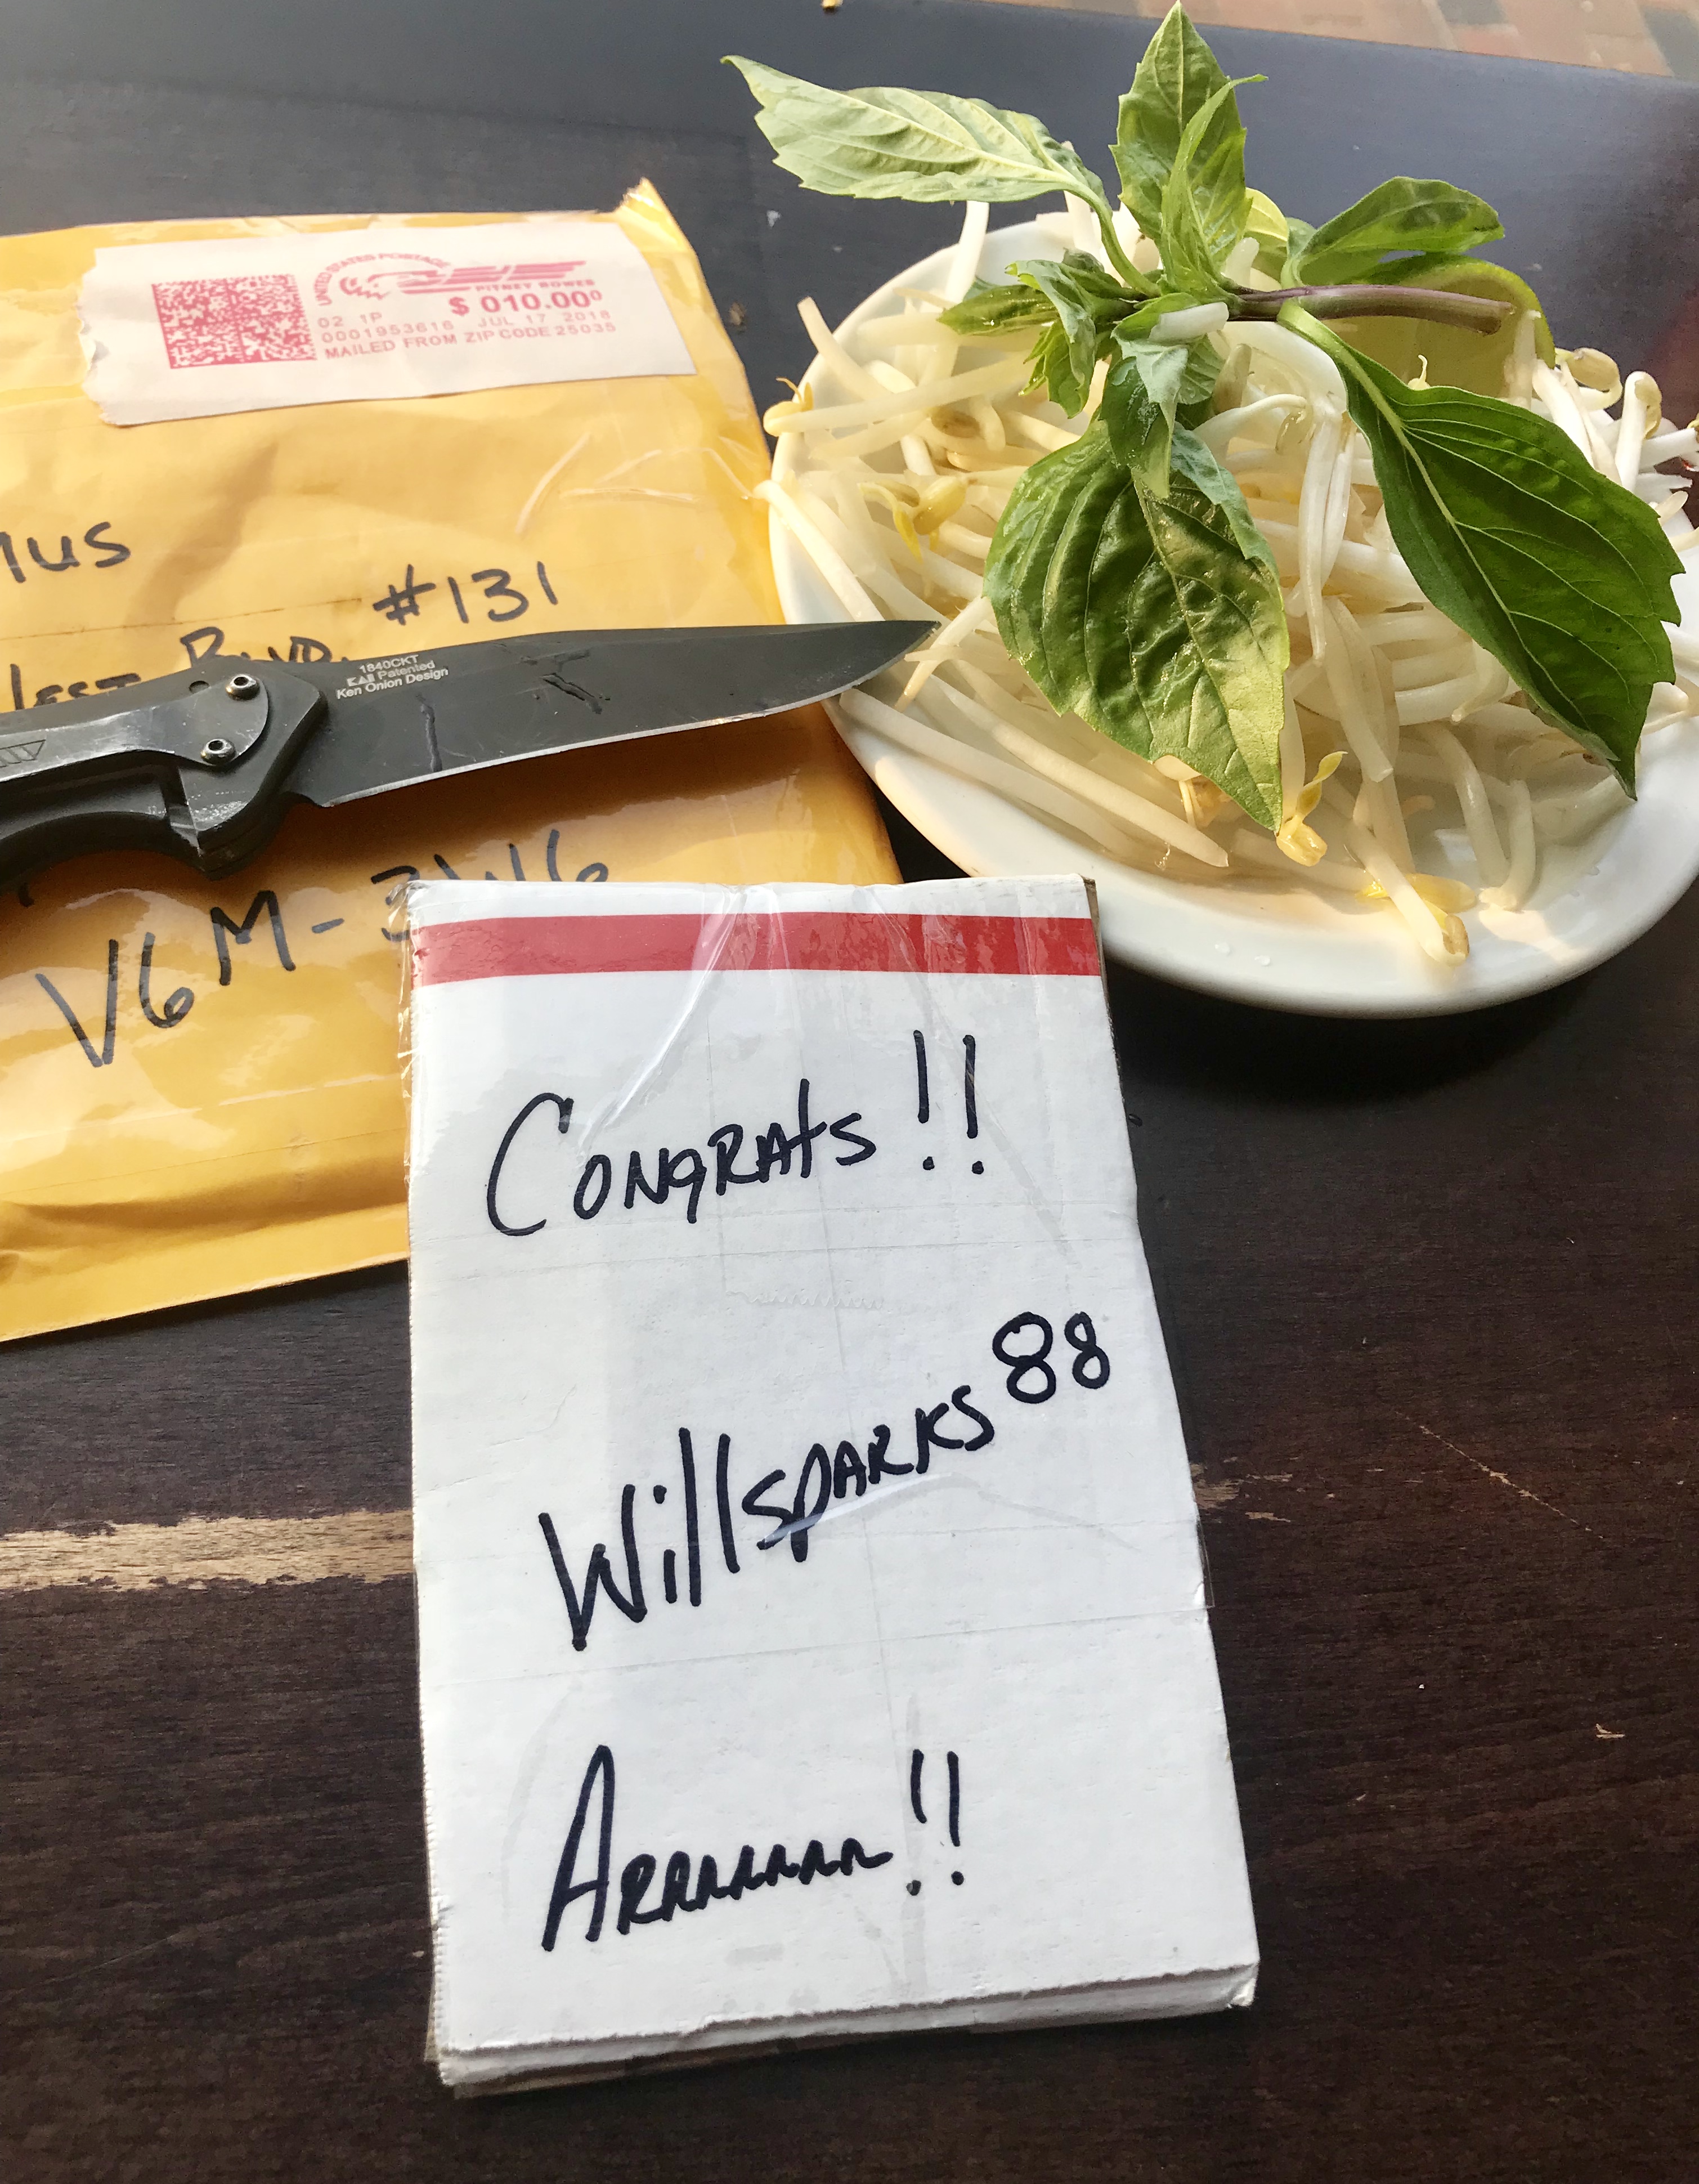 UNITED STATES POSTAGE
PITNEY BOWES
$ 010.00⁰
02 1P
0001953616 JUL 17 2018
MAILED FROM ZIP CODE 25035
#131
BLVD.
1840CKT
KAI Patented
Ken Onion Design
V6M-3W6
Congrats!!
Willsparks88
Arrrrrrr!!